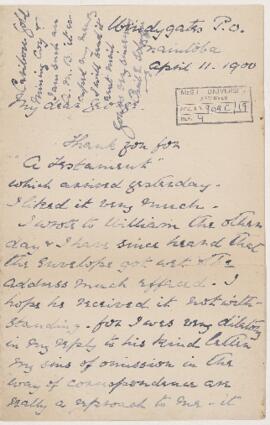 Windygates P.O.
Manitoba
April 11. 1900
My dear
McGILL UNIVERSITY
ARCHIVES
ACC. NO. 909 /19
REF. 4
Thank you for
"A Testament"
which arrived yesterday.
I liked it very much.
I wrote to William the other
day & I have since heard that
the envelope got wet & the
address much effaced. I
hope he received it not with-
standing - for I was very dilatory
in my reply to his kind letter
my sins of omission in the
way of correspondence are
really a reproach to me - it